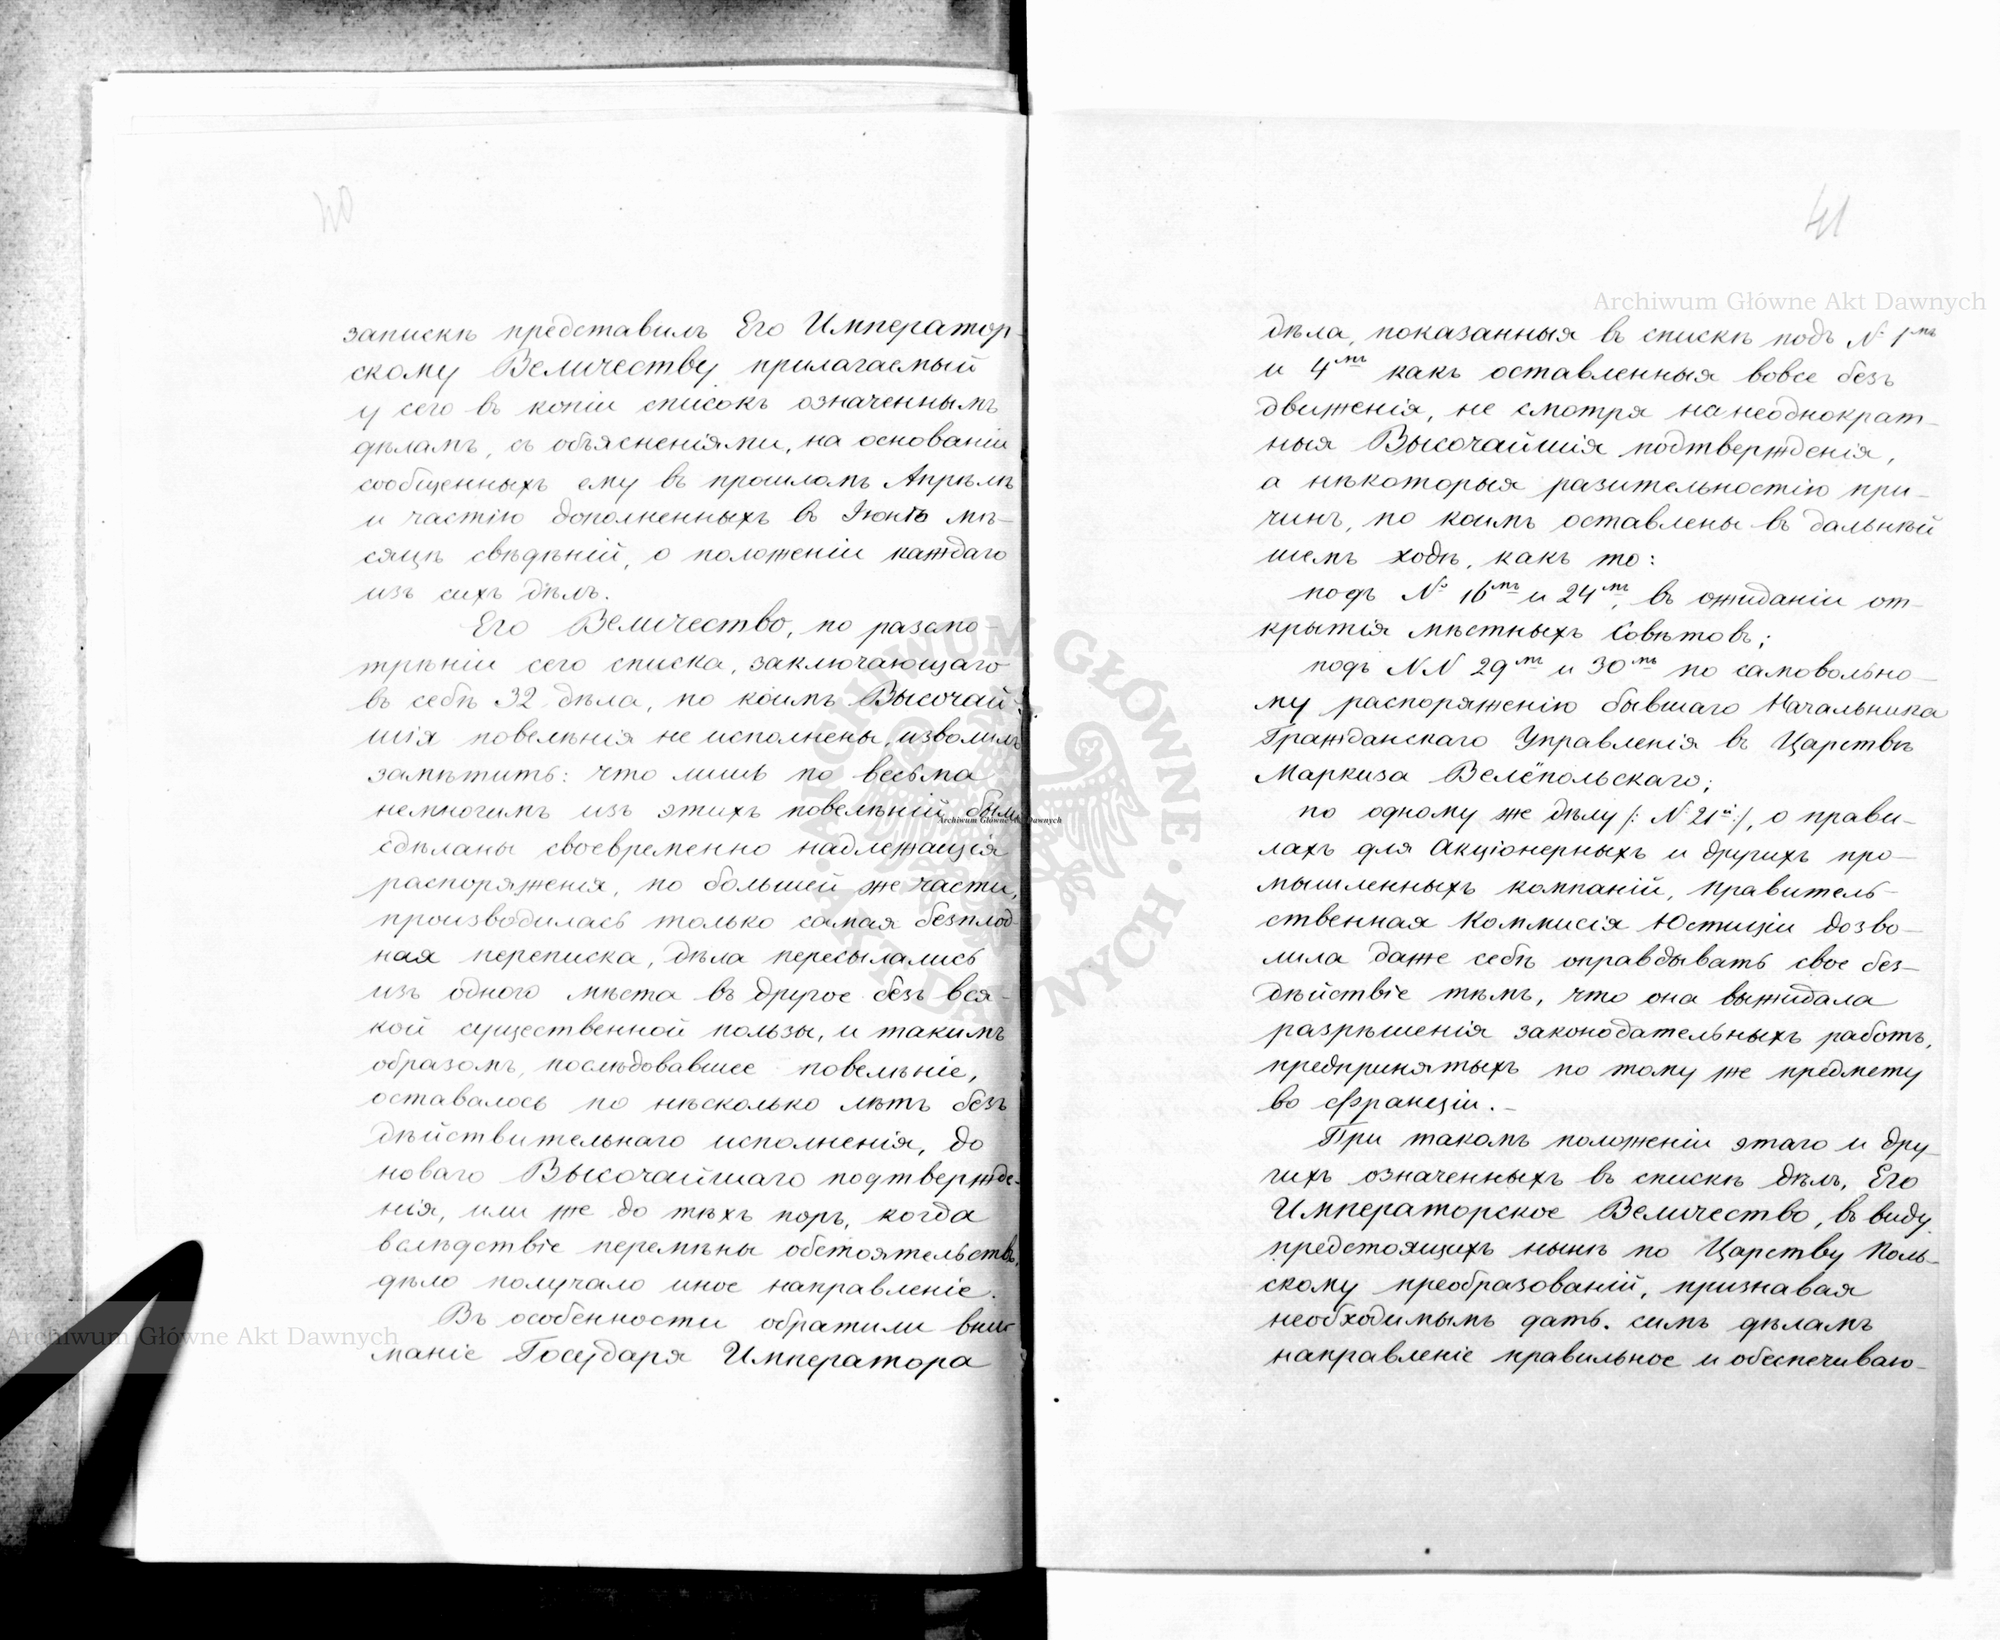 40
запискѣ представилъ Его Император-
скому Величеству прилагаемый
у сего въ копіи списокъ означеннымъ
дѣламъ, съ объясненіями, на основаніи
сообщенныхъ ему въ прошломъ Апрѣлѣ
и частію дополненныхъ въ Іюнѣ мѣ-
сяцѣ свѣдѣній, о положеніи каждаго
изъ сихъ дѣлъ.
Его Величество, по разсмо-
трѣніи сего списка, заключающаго
въ себѣ 32 дѣла, по коимъ Высочай-
шія повелѣнія не исполнены, изволилъ
замѣтить: что лишь по весьма
немногимъ изъ этихъ повелѣній были
сдѣланы своевременно надлежащія
распоряженія, по большей же части,
производилась только самая безплод-
ная переписка, дѣла пересылались
изъ одного мѣста въ другое безъ вся-
кой существенной пользы, и такимъ
образомъ, послѣдовавшее повелѣніе,
оставалось по нѣсколько лѣтъ безъ
дѣйствительнаго исполненія, до
новаго Высочайшаго подтвержде-
нія, или же до тѣхъ поръ, когда
вслѣдствіе перемѣны обстоятельствъ,
дѣло получало иное направленіе.
Въ особенности обратили вни-
маніе Государя Императора
41
Archiwum Główne Akt Dawnych
дѣла, показанныя въ спискѣ подъ № 1мъ
и 4мъ какъ оставленныя вовсе безъ
движенія, не смотря на неоднократ-
ныя Высочайшія подтвержденія,
а нѣкоторыя разительностію при-
чинъ, по коимъ оставлены въ дальнѣй
шемъ ходѣ, какъ то:
подъ № 16мъ и 24мъ, въ ожиданіи от-
крытія мѣстныхъ Совѣтовъ;
подъ NN 29мъ и 30мъ по самовольно-
му распоряженію бывшаго Начальника
Гражданскаго Управленія въ Царствѣ
Маркиза Велёпольскаго;
по одному же дѣлу /: № 21й :/, о прави-
лахъ для Акціонерныхъ и другихъ про-
мышленныхъ компаній, Правитель-
ственная Коммисія Юстиціи дозво-
лила даже себѣ оправдывать свое без-
дѣйствіе тѣмъ, что она выжидала
разрѣшенія законодательныхъ работъ,
предпринятыхъ по тому же предмету
во Франціи.-
При такомъ положеніи этаго и дру-
гихъ означенныхъ въ спискѣ дѣлъ, Его
Императорское Величество, въ виду
предстоящихъ нынѣ по Царству Поль-
скому преобразованій, признавая
необходимымъ дать. симъ дѣламъ
направленіе правильное и обеспечиваю-
Archiwum Główne Akt Dawnych
Archiwum Główne Akt Dawnych
ARCHIWUM GŁÓWNE AKT DAWNYCH